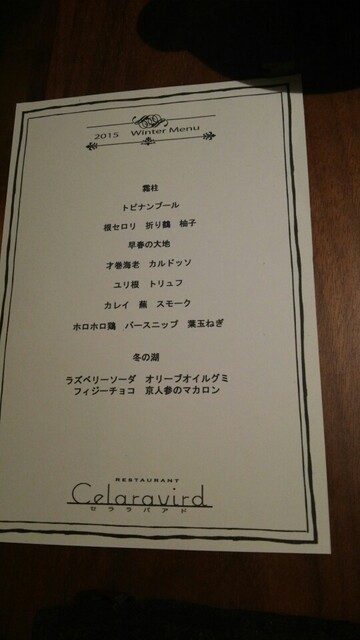 2015 Winter Menu
霜柱
トピナンブール
根セロリ 折り鶴 柚子
早春の大地
才巻海老 カルドッソ
ユリ根 トリュフ
カレイ 蕪 スモーク
ホロホロ鶏 パースニップ 葉玉ねぎ
冬の湖
ラズベリーソーダ オリーブオイルグミ
フィジーチョコ 京人参のマカロン
RESTAURANT
Celaravird
セララバアド